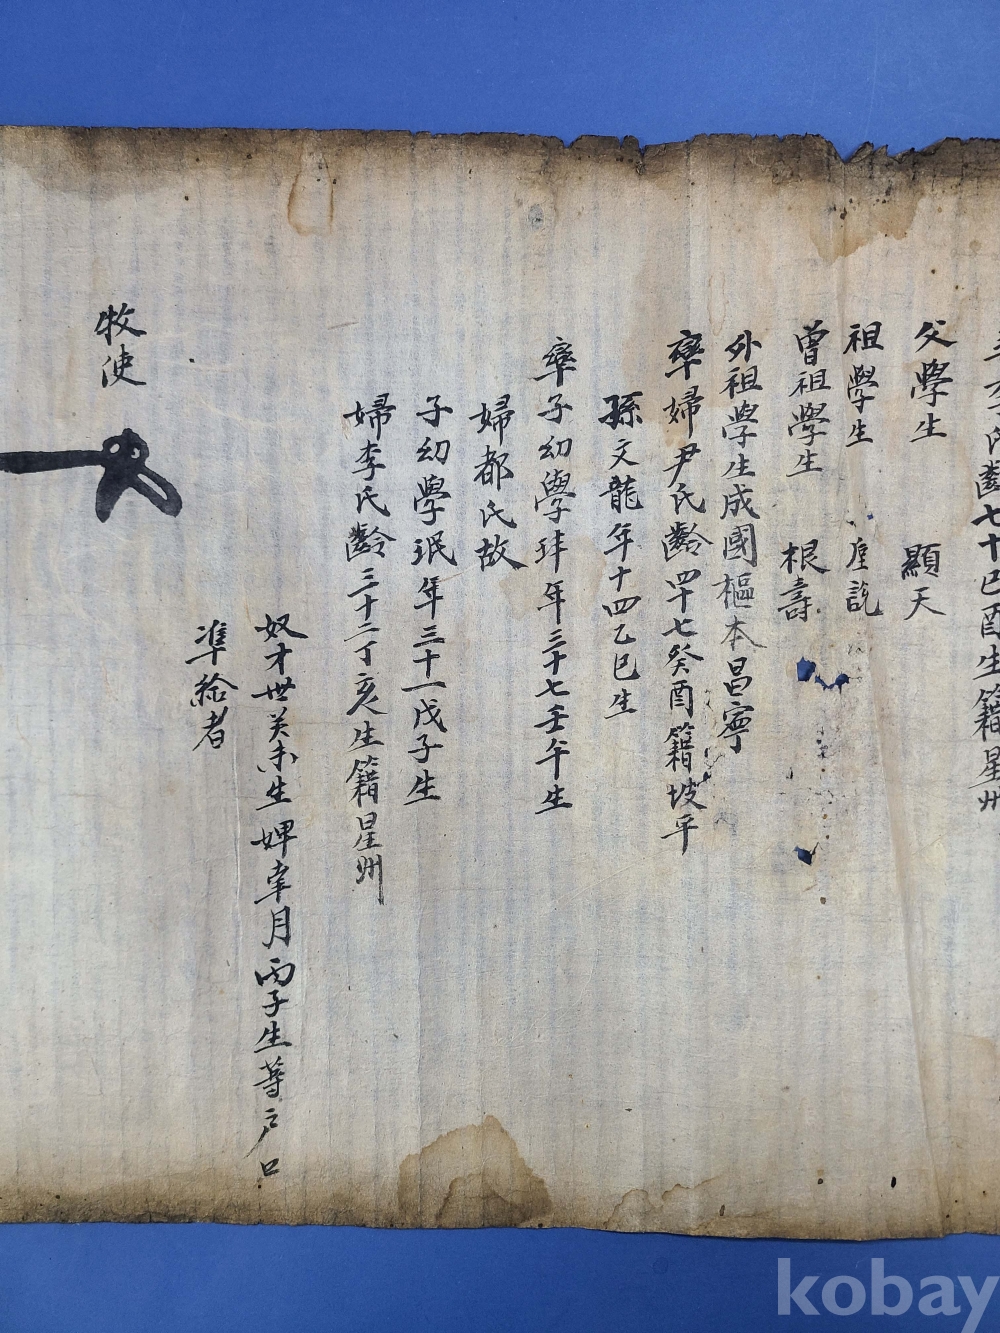 齒七十己酉生籍星州
父學生 顯天
祖學生 說
曾祖學生 根壽
外祖學生成國樞本昌寧
率婦尹氏齡四十七癸酉籍坡平
孫文龍年十四乙巳生
率子幼學 年三十七壬午生
婦都氏故
子幼學珉年三十一戊子生
婦李氏齡三十二丁亥生籍星州
奴才世癸未生婢幸月丙子生等戶口
準給者
牧使
kobay